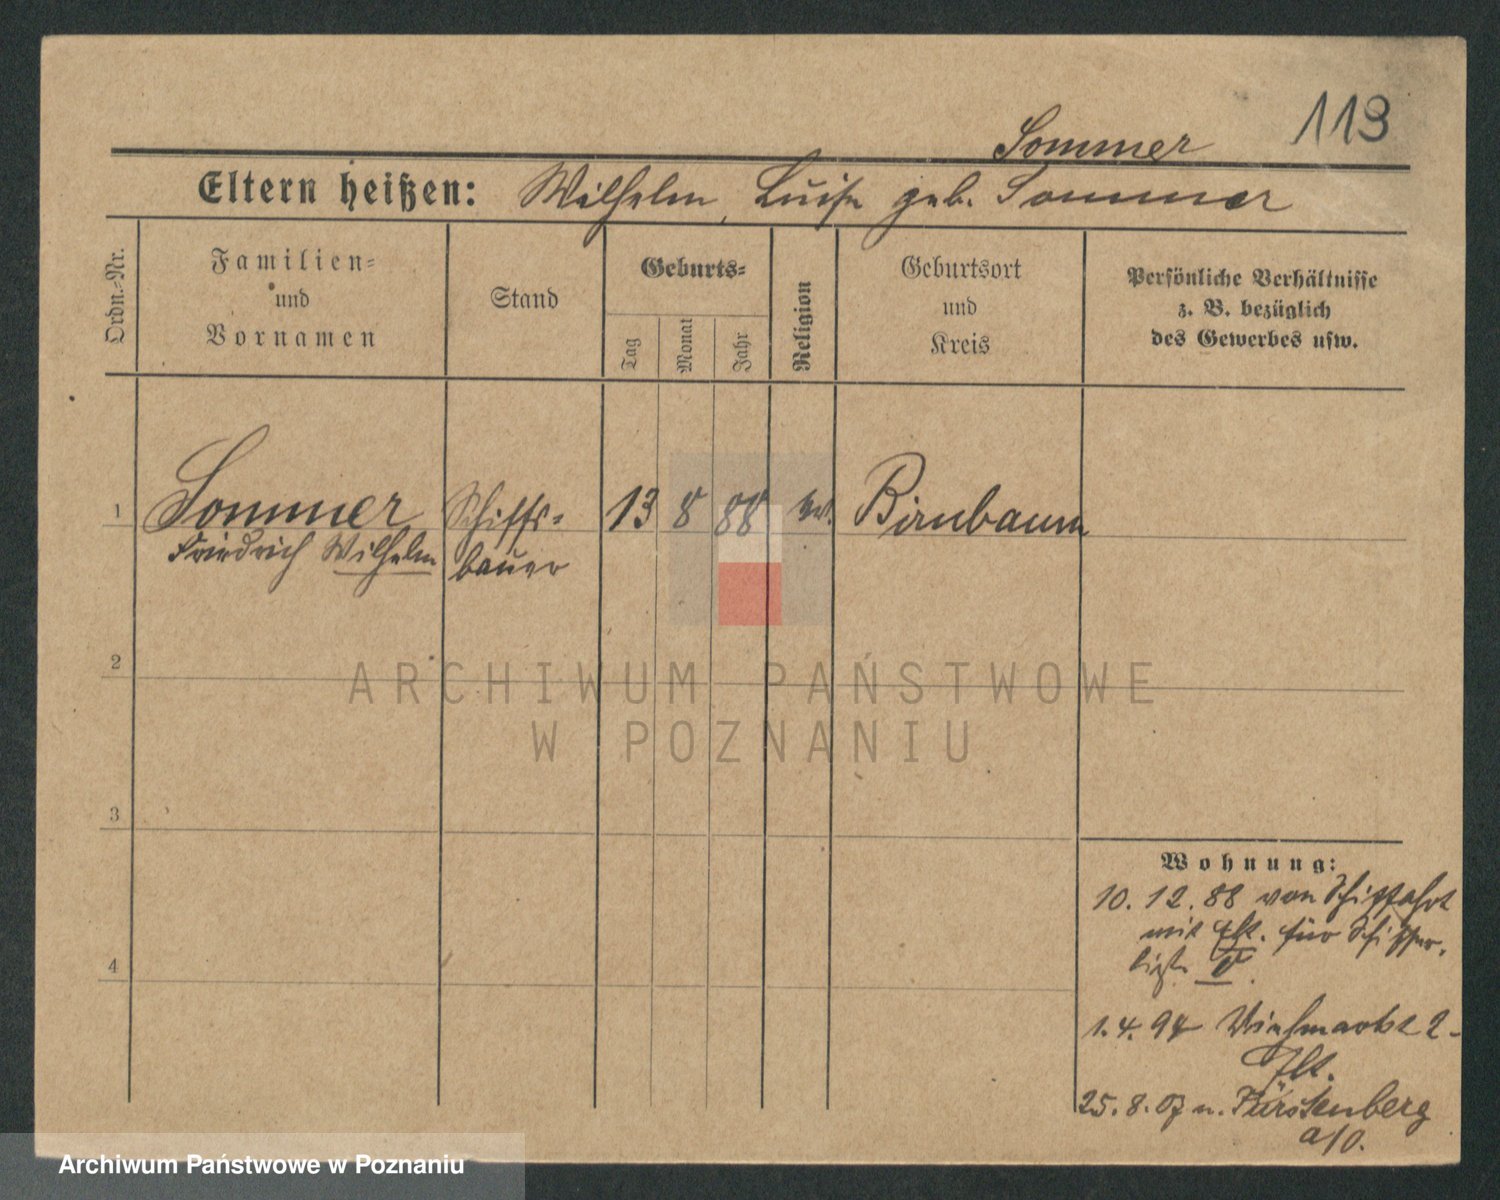 113
Sommer
Eltern heißen: Wilhelm, Luise geb. Sommer
Ordn.-Nr.
Familien-
und
Vornamen
Stand
Geburts-
Tag
Monat
Jahr
Religion
Geburtsort
und
Kreis
Persönliche Verhältnisse
z. B. bezüglich
des Gewerbes usw.
1
Sommer
Friedrich Wilhelm
Schiffs-
bauer
13
8
88
ev.
Birnbaum
2
3
4
Wohnung:
10.12.88 von Schiffahrt
mit Elt. für Schiffer-
liste
1.4.94 Viehmarkt 2-
Elt.
25.8.07 n. Fürstenberg
a/O.
ARCHIWUM PAŃSTWOWE
W POZNANIU
Archiwum Państwowe w Poznaniu